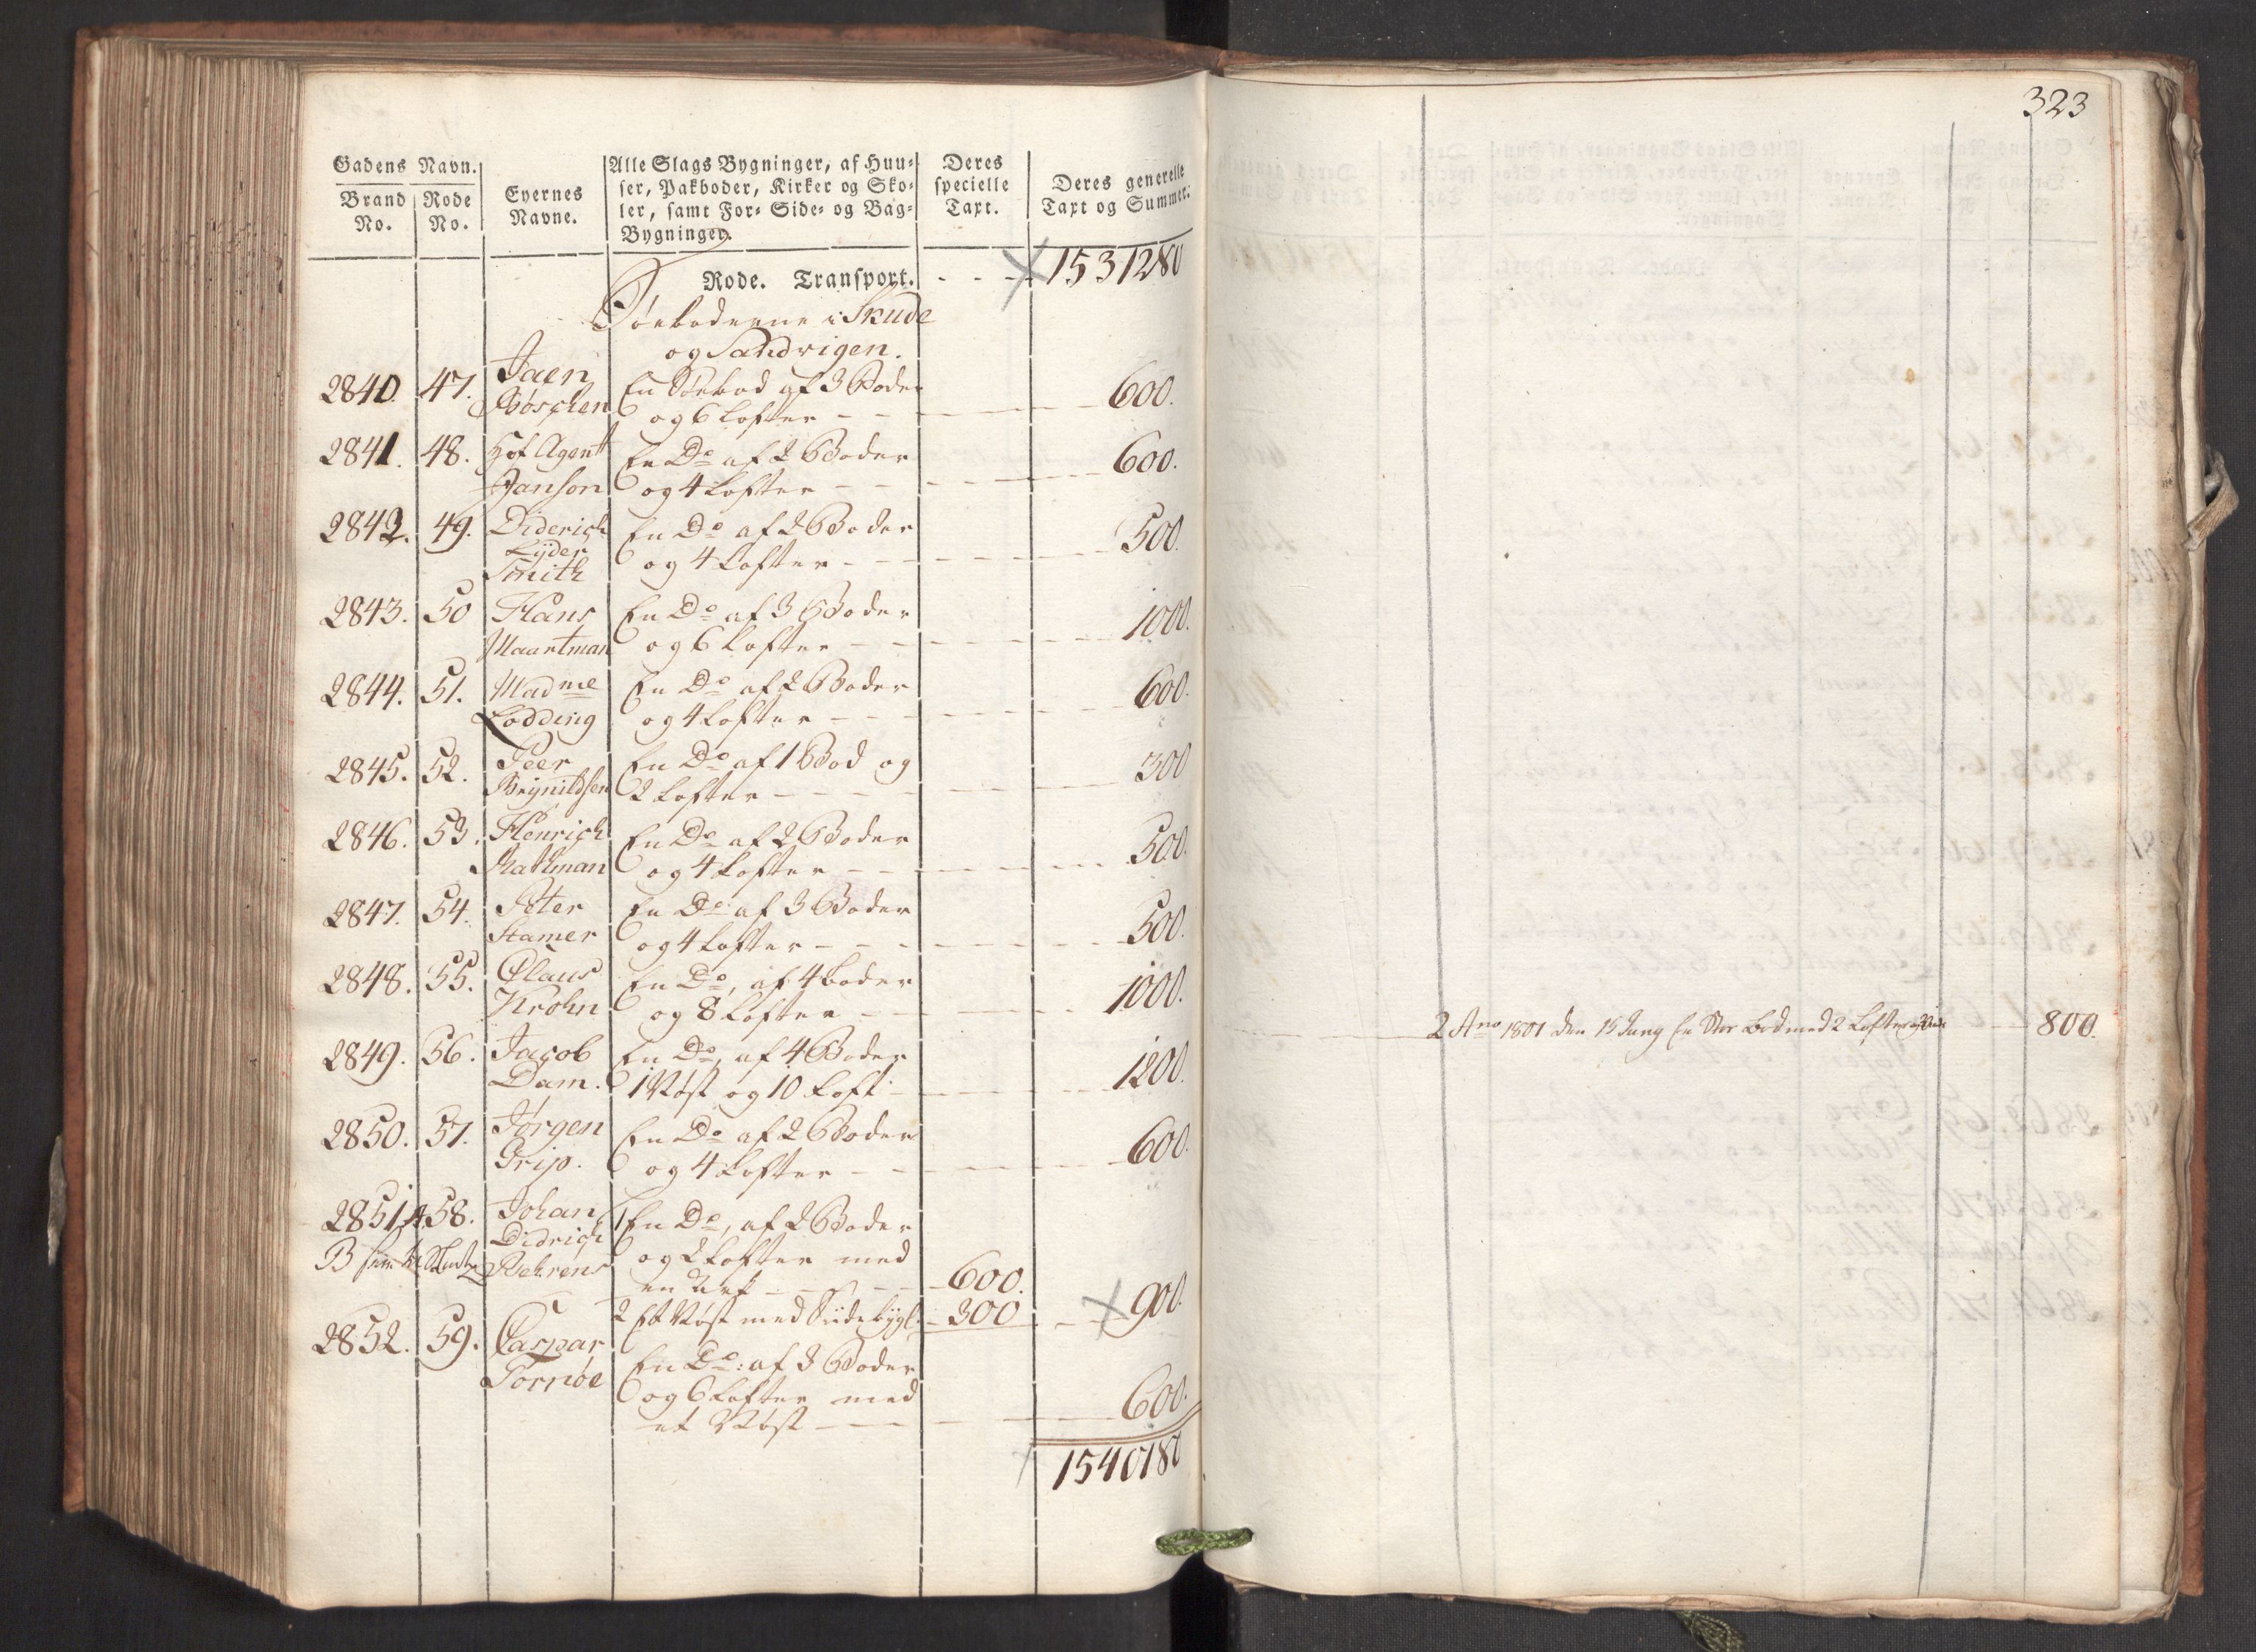 323
Gadens Navn.
Brand No. Rode No. Eyernes Navne. Alle Slags Bygninger, af Huu-
ser, Pakboder, Kirker og Sko-
ler, samt For- Side- og Bag-
Bygninger. Deres specielle Taxt. Deres generelle Taxt og Summer.
Rode. Transport. - - - 1531280
Söeboderne i Skude
og Sandvigen.
2840. 47. Jaen En Söebod af 3 Boder
Bøschen og 6 Lofter - - 600.
2841. 48. Hof Agent En Do af 2 Boder
Janson og 4 Lofter - - 600.
2842. 49. Diderich En Do af 2 Boder
Lyder
Smith og 4 Lofter - - 500.
2843. 50 Hans En Do af 3 Boder
Maartman og 6 Lofter - - 1000.
2844. 51. Madme En Do af 2 Boder
Lodding og 4 Lofter - - 600.
2845. 52. Peer En Do af 1 Bod og
Brynildsen 2 Lofter - - 300
2846. 53. Henrich En Do af 2 Boder
Kathman og 4 Lofter - - 500.
2847. 54. Peter En Do af 3 Boder
Stamer og 4 Lofter - - 500.
2848. 55. Claus En Do, af 4 boder
Krohn og 8 Lofter - - 1000.
2 Ano 1801 den 15 Juny En Stor Bod med 2 Lofter 800.
2849. 56. Jacob En Do, af 4 Boder
Dam. 1 Røst og 10 Loft - 1200.
2850. 57. Jørgen En Do af 2 Boder
Grip. og 4 Lofter - - 600.
2851 A 58. Johan 1 En Do, af 2 Boder
Didrich
B Behrens og 2 Lofter med
en Ark - - 600.
2 Et Røst med Siidebygl. - 300 - 900.
2852. 59. Caspar
Tornöe En Do: af 3 Boder
og 6 Lofter med
et Røst - - 600.
1540180